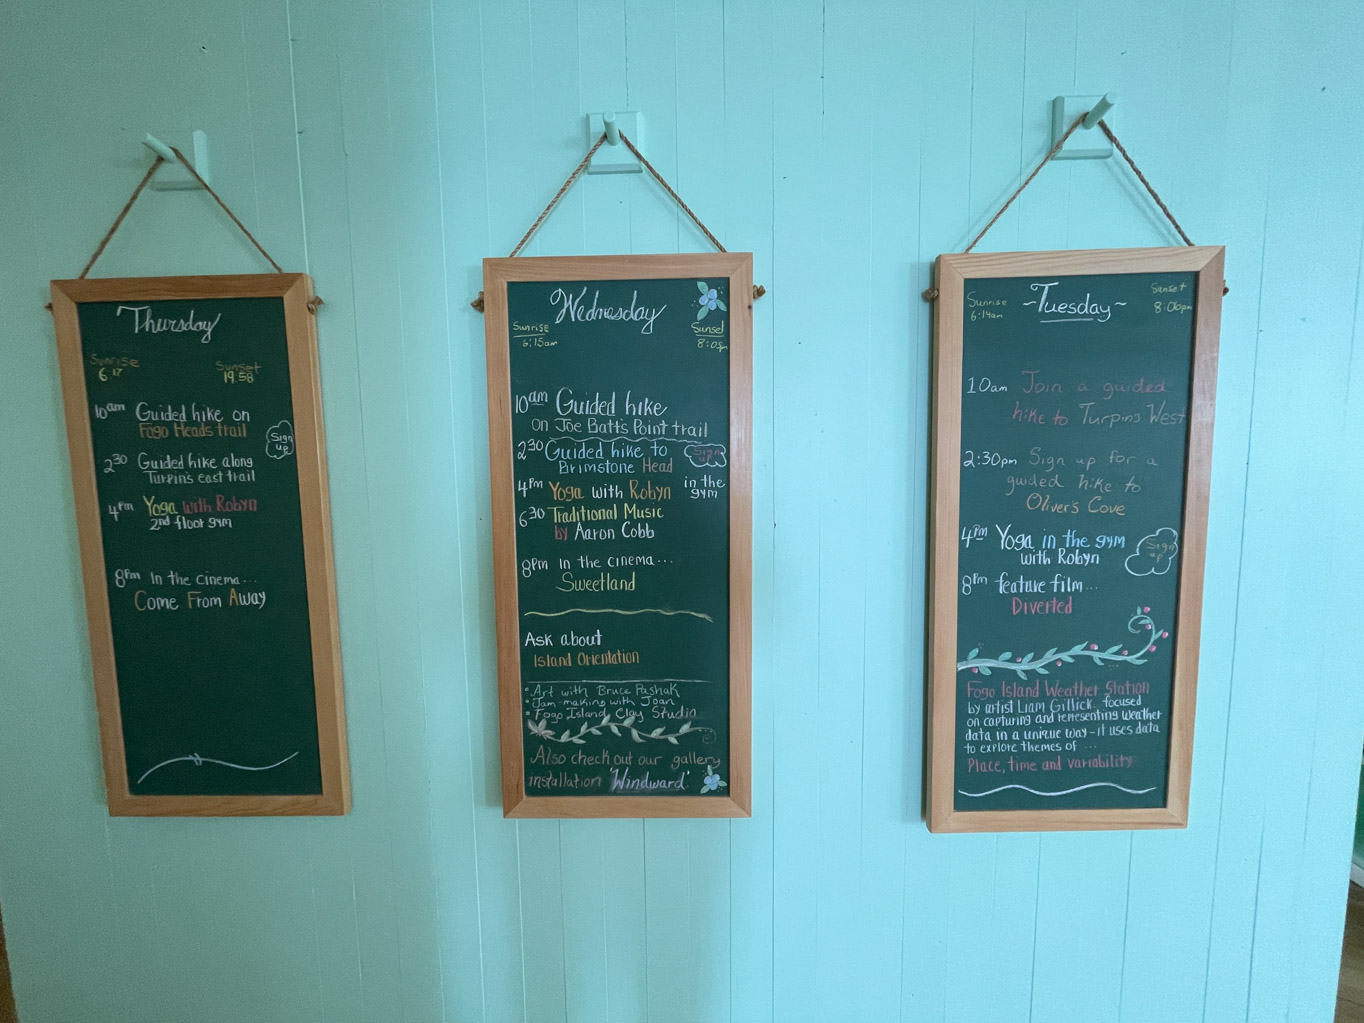 Thursday
Sunrise
6:17
Sunset
19:58
10am Guided hike on
Fogo Heads trail
Sign
up
2:30 Guided hike along
Turpin's east trail
4pm Yoga with Robyn
2nd floor gym
8pm In the cinema...
Come From Away
Wednesday
Sunrise
6:15am
Sunset
8:05pm
10am Guided hike
on Joe Batt's Point trail
2:30 Guided hike to
Brimstone Head
Sign
up
4pm Yoga with Robyn
in the
gym
6:30 Traditional Music
by Aaron Cobb
8pm In the cinema...
Sweetland
Ask about
Island Orientation
• Art with Bruce Pashak
• Jam-making with Joan
• Fogo Island Clay Studio
Also check out our gallery
installation 'Windward'.
~Tuesday~
Sunrise
6:14am
Sunset
8:00pm
10am Join a guided
hike to Turpins West
2:30pm Sign up for a
guided hike to
Oliver's Cove
4pm Yoga in the gym
with Robyn
Sign
up
8pm feature film...
Diverted
Fogo Island Weather Station
by artist Liam Gillick. focused
on capturing and representing weather
data in a unique way - it uses data
to explore themes of ...
Place, time and variability